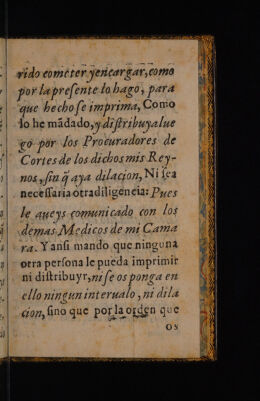 rido cometer yencargar, como
por la preſente lo hago, para
que hecho ſe imprima, Como
lo he mãdado, y diſtribuyalue
go por los Procuradores de
Cortes de los dichos mis Rey-
nos, ſin q̃ aya dilacion, Ni ſea
neceſſaria otradiligencia: Pues
le aueys comunicado con los
demas Medicos de mi Cama
ra. Y anſi mando que ninguna
otra perſona le pueda imprimir
ni diſtribuyr, ni ſe os ponga en
ello ningun interualo, ni dila
cion, ſino que por la orden que
os